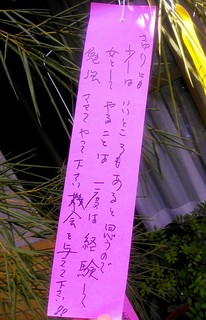 少しは いいところも あると思うので
女として やることは 一度は 経験して
させて やって下さい 機会を与えて下さい